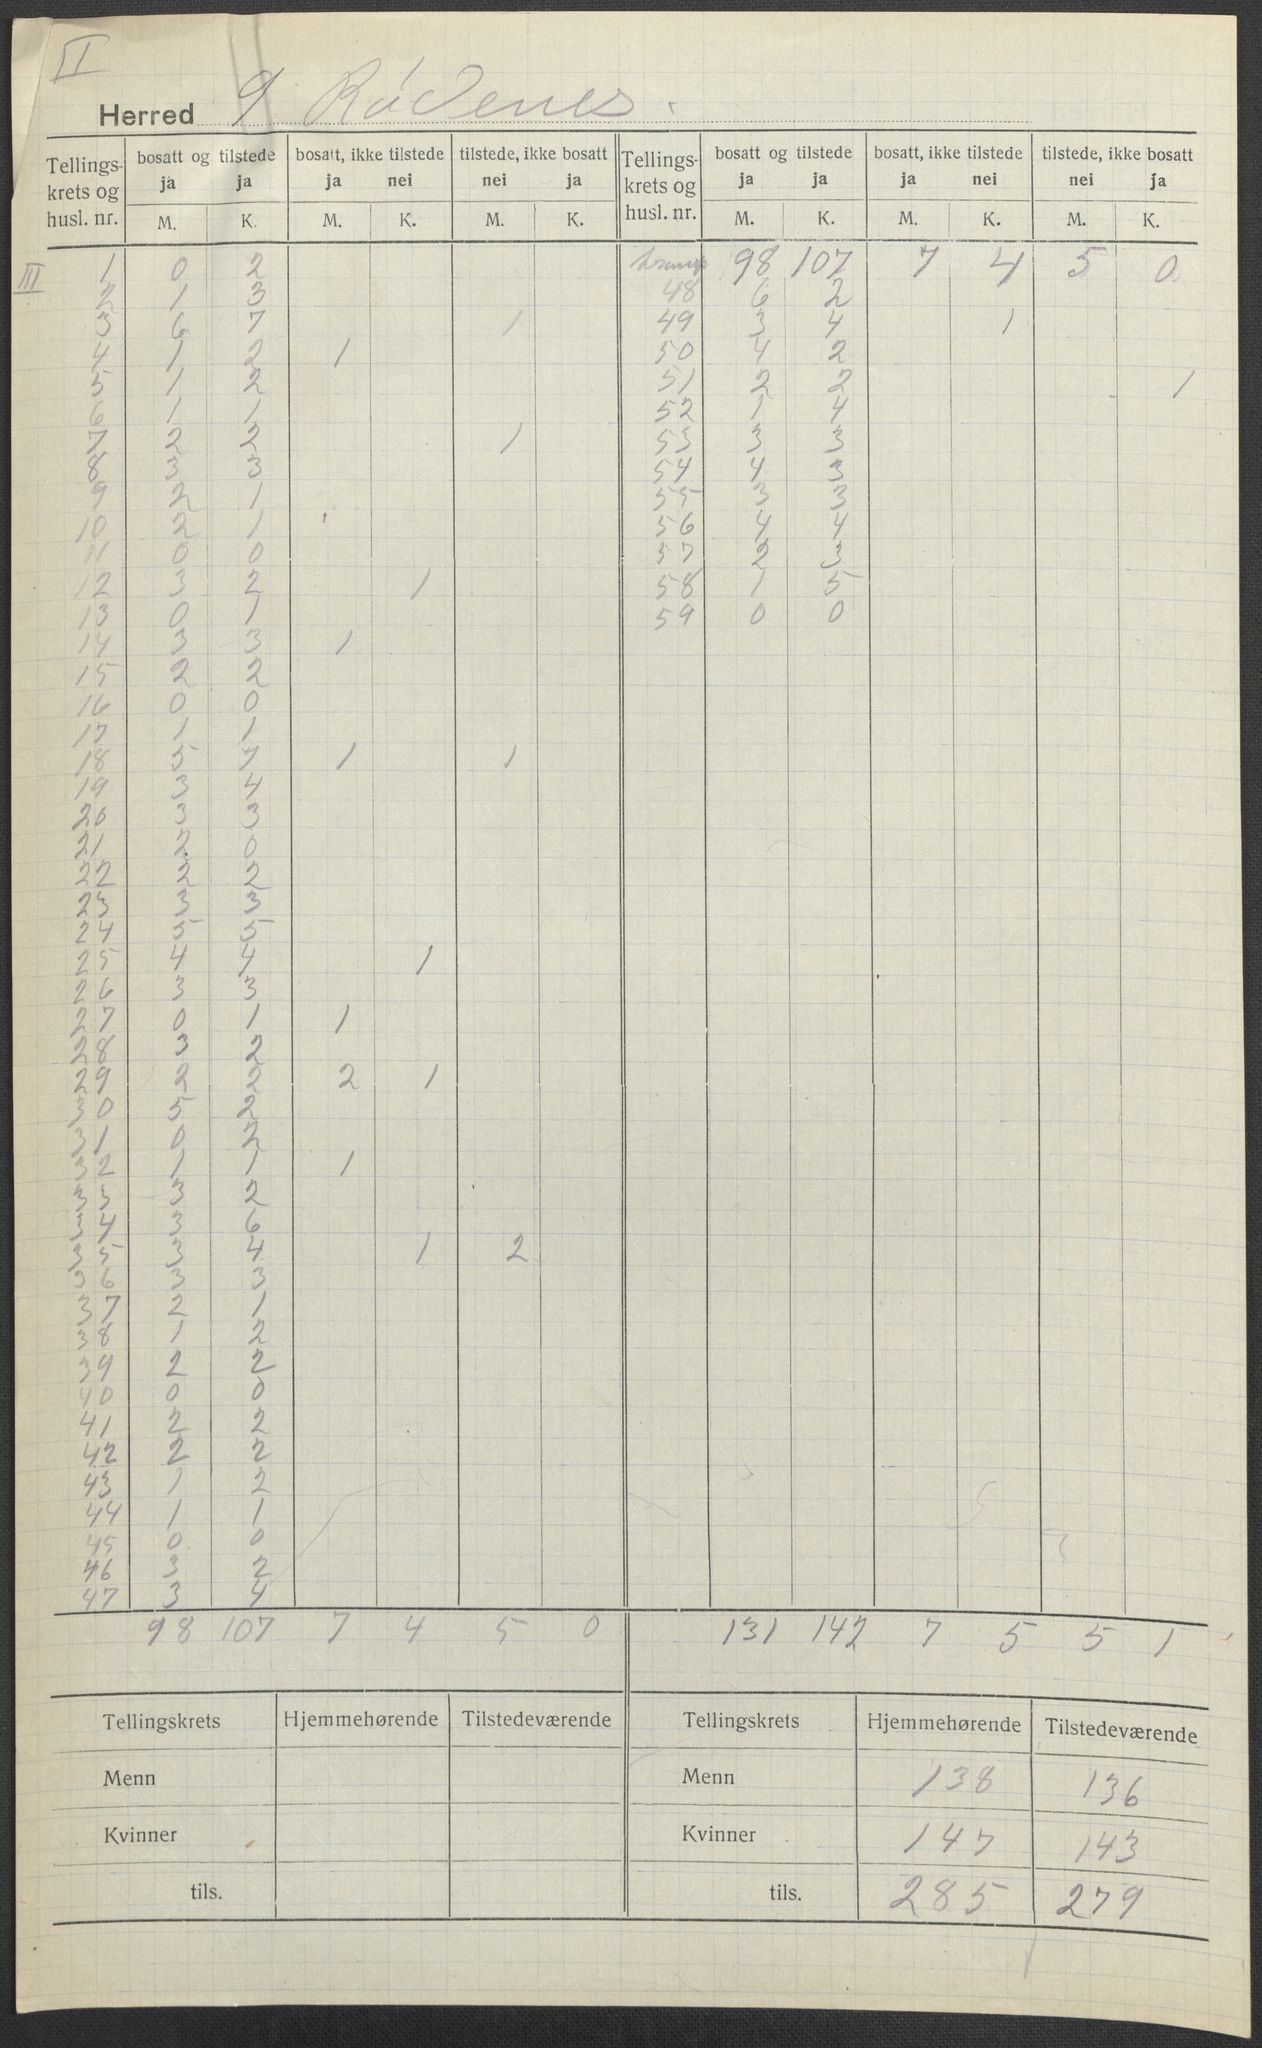 VI
Herred 9 Rødenes.
Tellings- krets og husl. nr. | bosatt og tilstede ja ja M. K. | bosatt, ikke tilstede ja nei M. K. | tilstede, ikke bosatt nei ja M. K. | Tellings- krets og husl. nr. | bosatt og tilstede ja ja M. K. | bosatt, ikke tilstede ja nei M. K. | tilstede, ikke bosatt nei ja M. K.
III 1 0 2
2 1 3
3 6 7 1
4 1 2 1
5 1 2
6 1 1
7 2 2 1
8 3 3
9 2 1
10 2 1
11 0 0
12 3 2 1
13 0 1
14 3 3 1
15 2 2
16 0 0
17 1 1
18 5 7 1 1
19 3 4
20 3 3
21 2 0
22 2 2
23 3 3
24 5 5
25 4 4 1
26 3 3
27 0 1 1
28 3 2
29 2 2 2 1
30 5 2
31 0 2
32 1 1 1
33 3 2
34 3 6
35 3 4 1 2
36 3 3
37 2 1
38 1 2
39 2 2
40 0 0
41 2 2
42 2 2
43 1 2
44 1 1
45 0 0
46 3 2
47 3 4
98 107 7 4 5 0
98 107 7 4 5 0
48 6 2
49 3 4 1
50 4 2
51 2 2 1
52 1 4
53 3 3
54 4 3
55 3 3
56 4 4
57 2 3
58 1 5
59 0 0
131 142 7 5 5 1
Tellingskrets Hjemmehørende Tilstedeværende
Menn
Kvinner
tils.
Tellingskrets Hjemmehørende Tilstedeværende
Menn 138 136
Kvinner 147 143
tils. 285 279